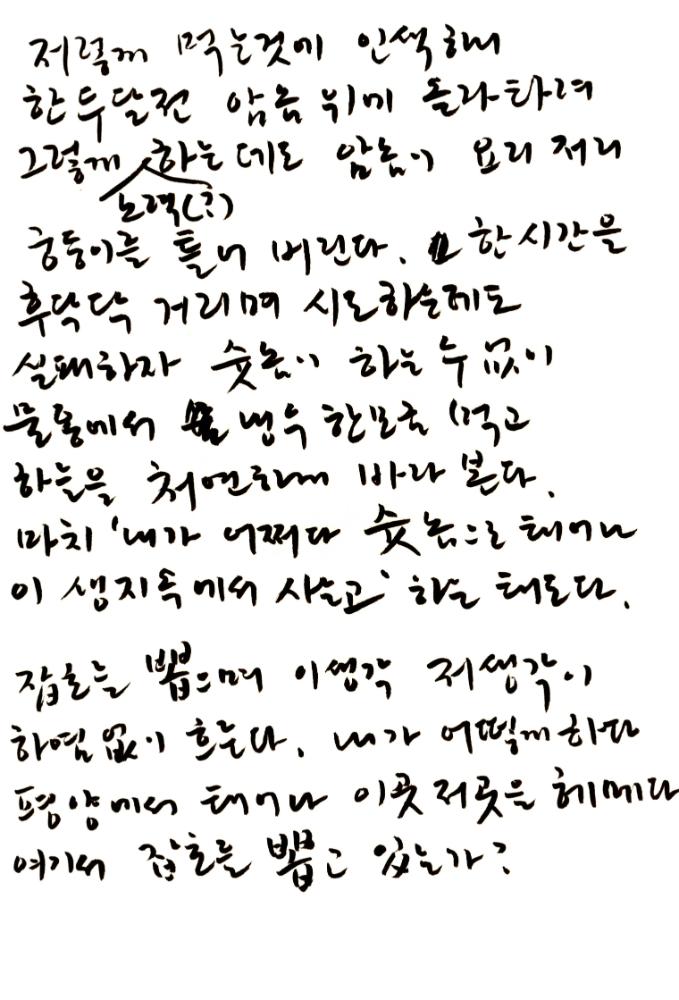 저렇게 먹는것에 인색해서
한 두달전 암놈 위에 올라타려
그렇게 하는데도 암놈이 요리 저리
노력(?)
궁둥이를 틀어 버린다. 한시간을
후닥닥 거리며 시도하는데도
실패하자 숫놈이 하는 수 없이
물통에서 냉수 한모금 먹고
하늘을 처연하게 바라 본다.
마치 '내가 어쩌다 숫놈으로 태어나
이 생지옥에서 사는고' 하는 태도다.
잡초를 뽑으며 이생각 저생각이
하염없이 흐른다. 내가 어떻게하다
평양에서 태어나 이곳저곳을 헤메다
여기서 잡초를 뽑고 있는가?